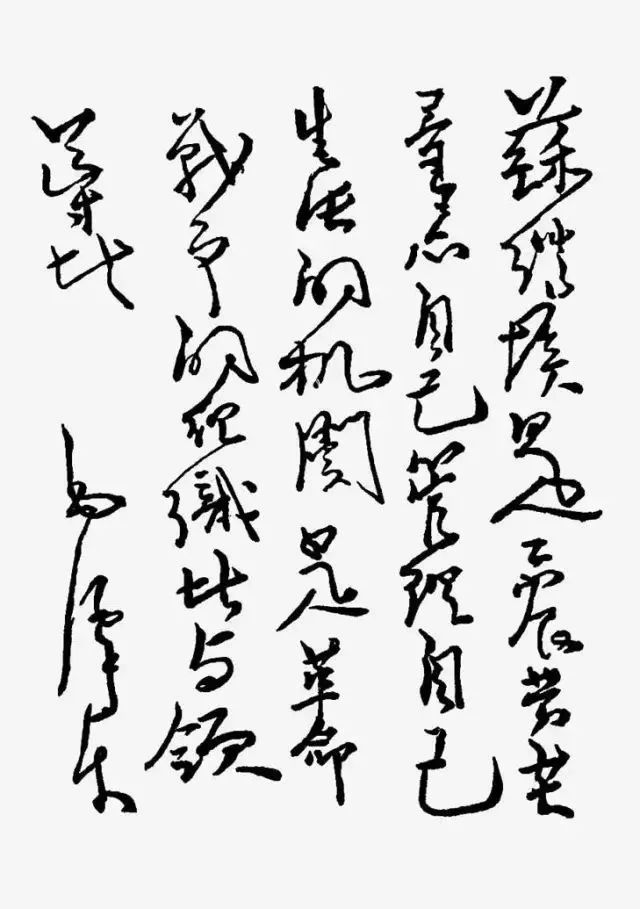 蘇維埃是工農劳苦
羣众自己管理自己
生活的机關是革命
戰争的組織者与領
導者 毛澤东